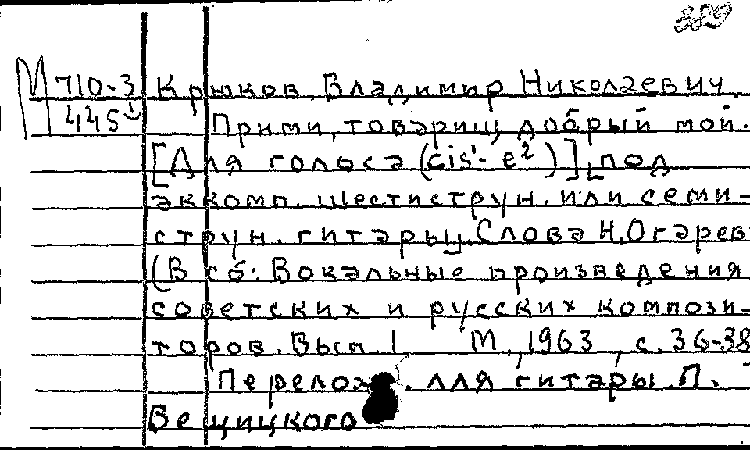 889
М 710-3 Крюков, Владимир Николаевич.
445 Прими, товарищ добрый мой.
[Для голоса (cis¹- e²)] под
аккомп. шестиструн. или семи-
струн. гитары. Слова Н. Огарев
(В сб: Вокальные произведения
советских и русских компози-
торов. Вып. 1 М., 1963, с. 36-38
Перелож. для гитары П.
Вещицкого